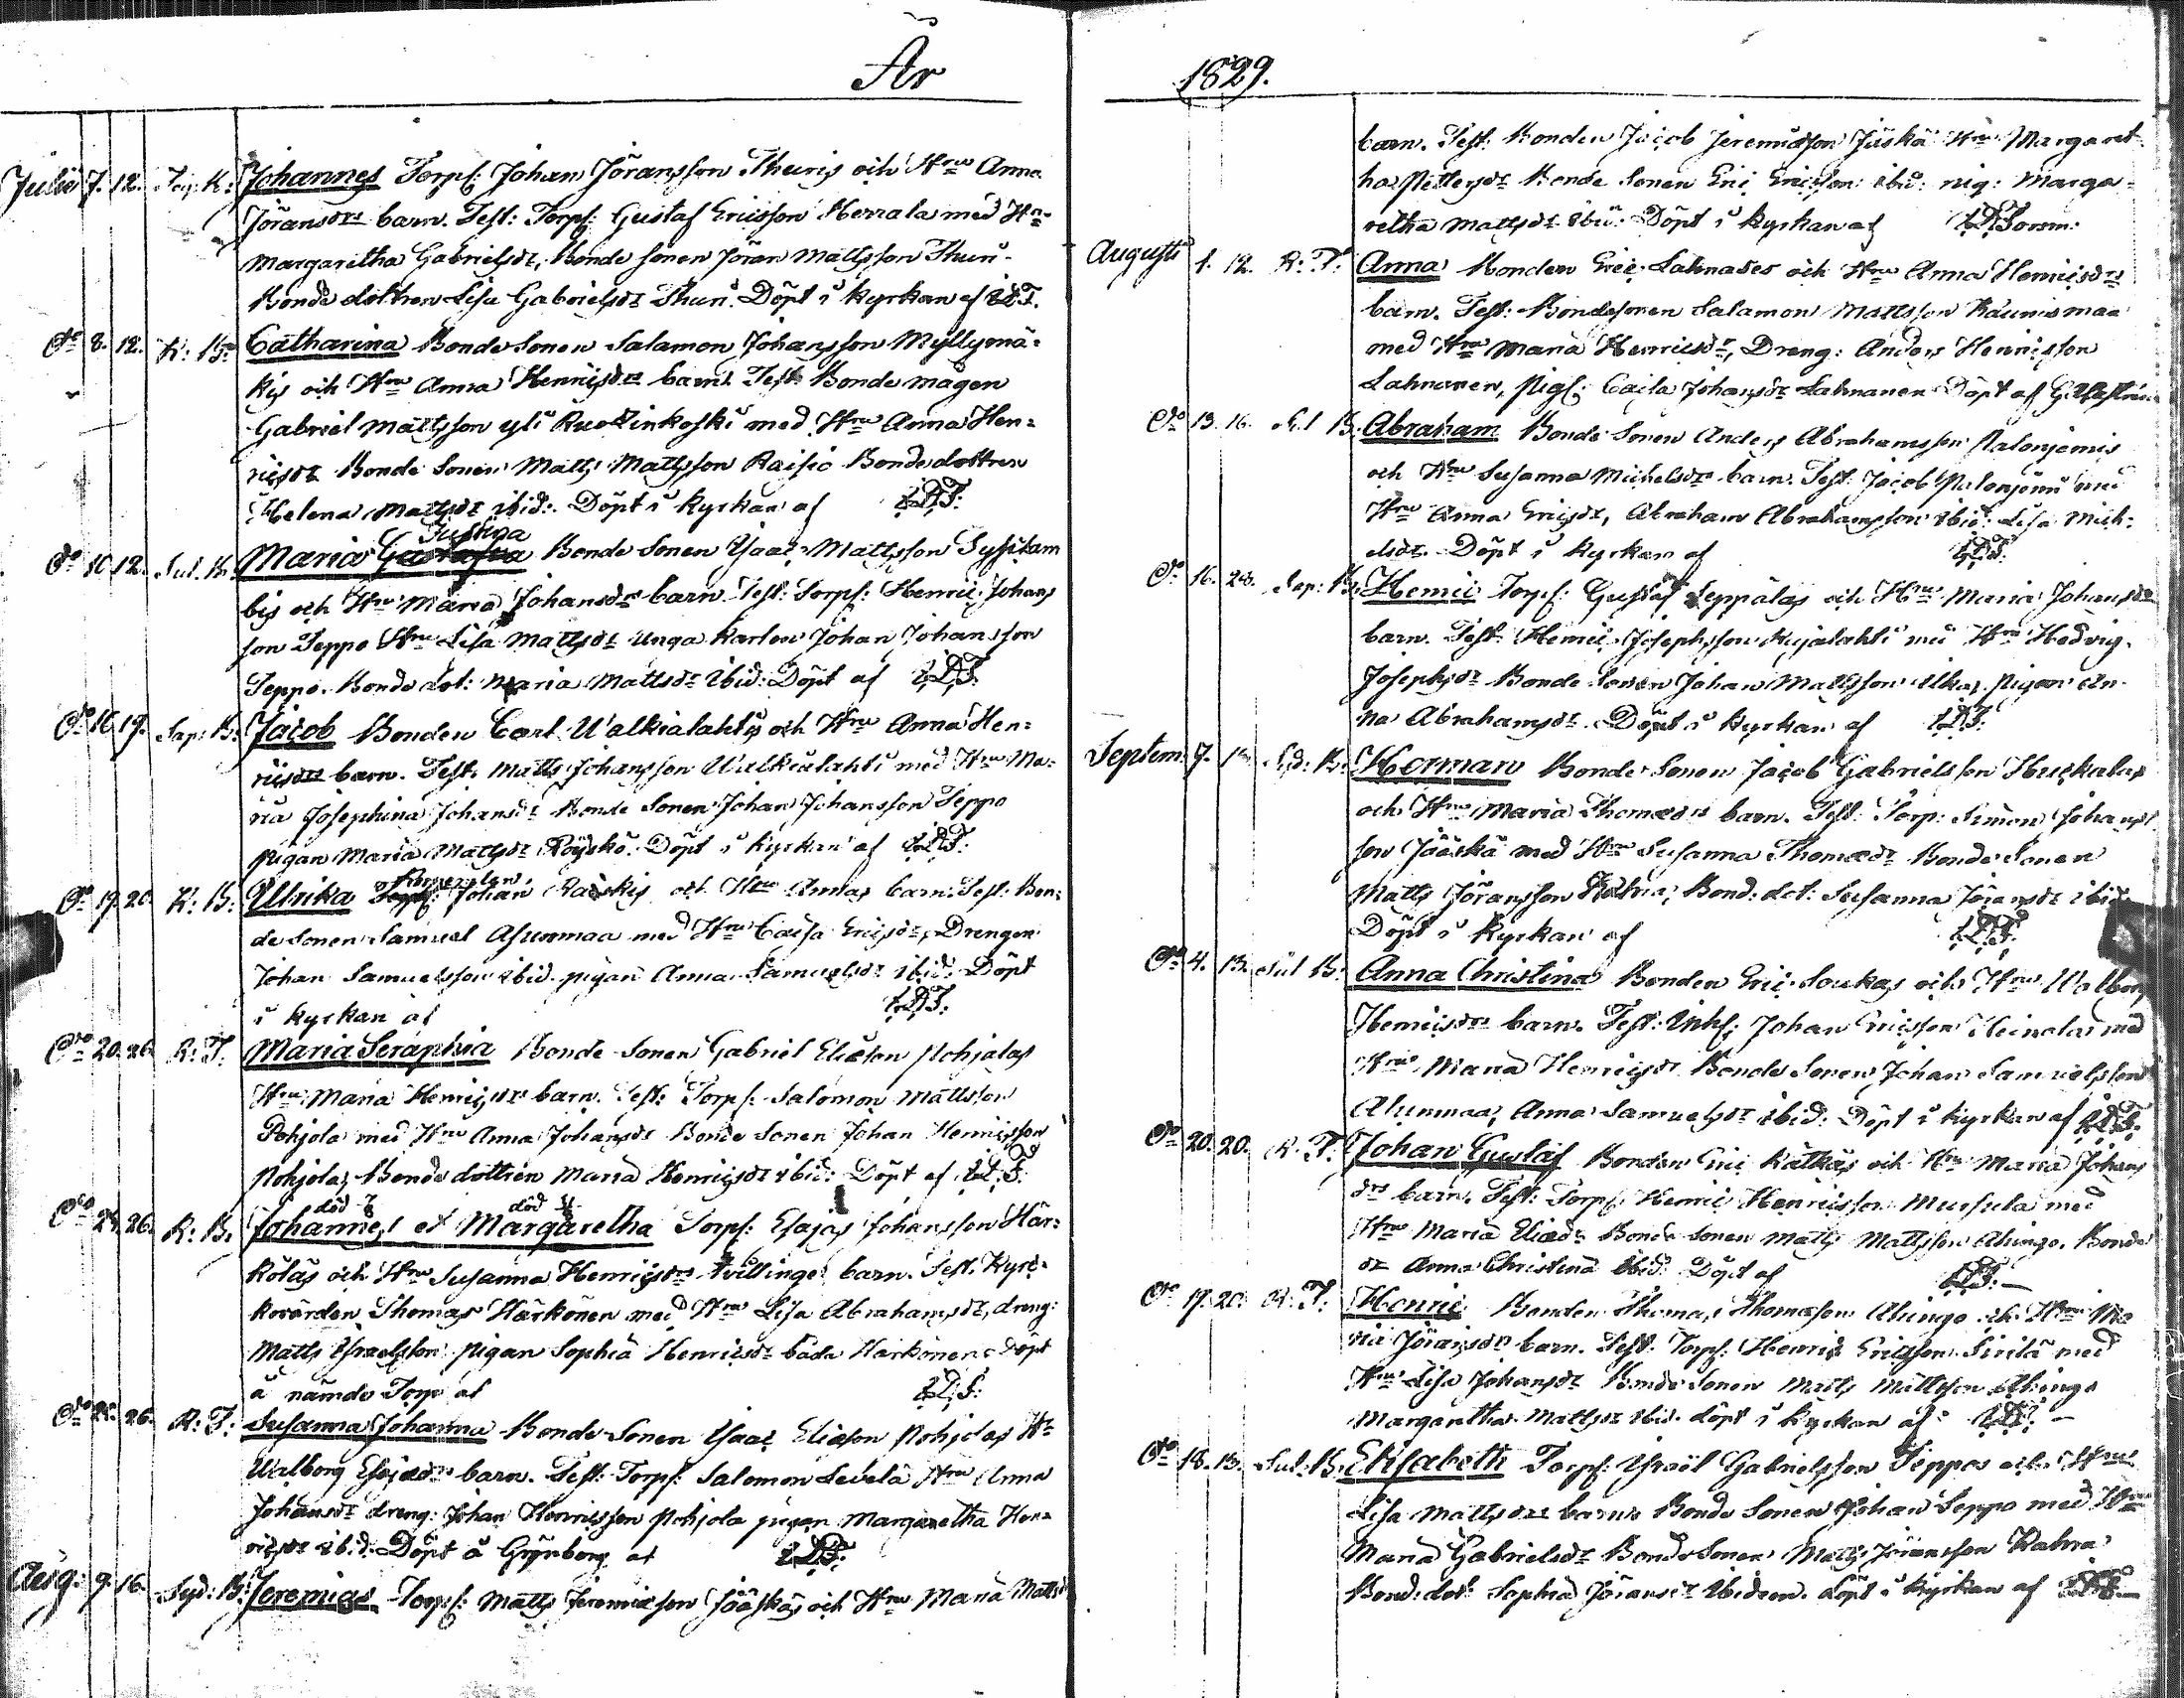 År
Julii 7. 12. Johannes Torpf: Johan Jöransson Thuris och Hru Anna
Jöransdrs barn. Test: Torpf: Gustaf Ericsson Herrala med H-
Margaretha Gabrielsdr, Bonde sonen Jöran Mattsson Thuri
Bonde dottren Lisa Gabrielsdr Thuri. Döpt i kyrkan af
do 8. 12. K: B: Catharina Bonde Sonen Salamon Johansson Myllymä-
kis och Hru Anna Henrigsdrs barn. Test: Bonde mågen
Gabriel Mattsson yli Ruotinkoski med Hru Anna Hen-
ricsdr Bonde Sonen Matts Mattsson Raisio Bonde dottren
Helena Mattsdr ibid: Döpt i kyrkan af
Justina
do 10. 12. Sul. B. Maria Gustafva Bonde Sonen Isaac Mattsson Sysilam
bis och Hru Maria Johansdrs barn. Test: Torpf: Henric Johans
son Seppo Hru Lisa Mattsdr unga karlen Johan Johansson
Seppo. Bonde dot: Maria Mattsdr ibid: Döpt af
do 16. 19. Sap: B. Jacob Bonden Carl Walkialahtis och Hru Anna Hen-
ricsdrs barn. Test: Matts Johansson Walkialahti med Hru Ma-
ria Josephina Johansdr Bonde Sonen Johan Johansson Seppo
pigan Maria Mattsdr Röyskö. Döpt i kyrkan af
do 19. 20. K: B: Ulrika Johan Raiskis och Hru Annas barn. Test: Bon-
de sonen Samuel Asunmaa med Hru Caisa Ericsdr, Drengen
Johan Samuelsson ibid. pigan Anna Samuelsdr ibid: Döpt
i kyrkan af
do 20. 26. R: T. Maria Seraphia Bonde Sonen Gabriel Eliæson Pohjolas
Hru Maria Henrigsdrs barn. Test: Torpf: Salomon Mattsson
Pohjola med Hru Anna Johansdr Bonde Sonen Johan Henricsson
Pohjola, Bonde dottren Maria Henrigsdr ibid: Döpt af
död död
do 24. 26. R: B. Johannes et Margaretha Torpf: Esajas Johansson Här-
kölas och Hru Susanna Henrigsdrs tvillinge barn. Test: Kyrc-
kovärden Thomas Härkönen med Hru Lisa Abrahamsdr, dreng:
Matts Israelsson pigan Sophia Henricsdr båda Härkönen döpt
å nämde Torp af
do 25. 26. R: T: Susanna Johanna Bonde Sonen Isaac Eliæson Pohjolas H-
Walborg Esajædrs barn. Test: Torpf: Salomon Levelä Hru Anna
Johansdr dreng: Johan Henricsson Pohjola pigan Margaretha Hen-
ricsdr ibid: Döpt å Grönborg af
Aug: 9. 16. Syd: B: Jeremias Torpf: Matts Jeremiæson Jääskäs och Hru Maria Mattsd
1829.
barn. Test: Bonden Jacob Jeremiæson Jäskä Hru Margaret
ha Pettersdr Bonde Sonen Eric Ericsson ibid: pig: Marga-
retha Mattsdr ibid: Döpt i kyrkan af
Augusti 1. 12. R: T: Anna Bonden Eric Lahnases och Hru Anna Henricsdrs
barn. Test: Bondesonen Salamon Mattsson Kaunismaa
med Hru Maria Henricsdr, Dreng: Anders Henricsson
Lahnanen, Pigf: Caisa Johansdr Lahnanen Döpt af
do 13. 16. Sul B. Abraham Bonde Sonen Anders Abrahamsson Palonjemis
och Hru Susanna Michelsdrs barn. Test: Jacob Palonjemi med
Hru Anna Ericsdr, Abraham Abrahamsson ibid: Lisa Mich-
elsdr. Döpt i kyrkan af
do 16. 23. Sap: B: Henric Torpf: Gustaf Seppälas och Hru Maria Johansdrs
barn. Test: Henric Josephsson Kujalahti med Hru Hedvig
Josephsdr Bonde Sonen Johan Mattsson Ulkas pigan An-
na Abrahamsdr. Döpt i kyrkan af
Septem. 7. Syd: B: Herman Bonde Sonen Jacob Gabrielsson Huckalas
och Hru Maria Thomædrs barn. Test: Torp: Simon Johans
son Jääskä med Hru Susanna Thomædr Bonde Sonen
Matts Jöransson Kahra, Bond: dot: Susanna Jöransdr ibid
Döpt i Kyrkan af
do 4. 13. Sul B: Anna Christina Bonden Eric Soukas och Hru Walborg
Henricsdrs barn. Test: Inhf: Johan Ericsson Heinola med
Hru Maria Henricsdr Bonde Sonen Johan Samuelsson
Asunmaa, Anna Samuelsdr ibid: Döpt i kyrkan af
do 20. 20. R. T. Johan Gustaf Bonden Eric Rätkäs och Hru Maria Johans
drs barn. Test: Torpf: Henric Henricsson med
Hru Maria Eliædr Bonde Sonen Matts Mattsson Ahingo. Bonde
dr Anna Christina ibid: Döpt af
do 17. 20. R: T: Henric Bonden Thomas Thomæson Ahingo och Hru Ma
ria Jöransdrs barn. Test: Torpf: Henric Ericsson Sivilä med
Hru Lisa Johansdr Bonde Sonen Matts Mattsson Ahingo
Margaretha Mattsdr ibid. döpt i kyrkan af
do 18. 13. Sul: B. Elisabeth Torpf: Israël Gabrielsson Seppos och Hru
Lisa Mattsdrs barn Bonde Sonen Johan Seppo med Hru
Maria Gabrielsdr Bonde Sonen Matts Jöransson Kahra
Bond: dot: Sophia Jöransdr ibidem. Döpt i kyrkan af